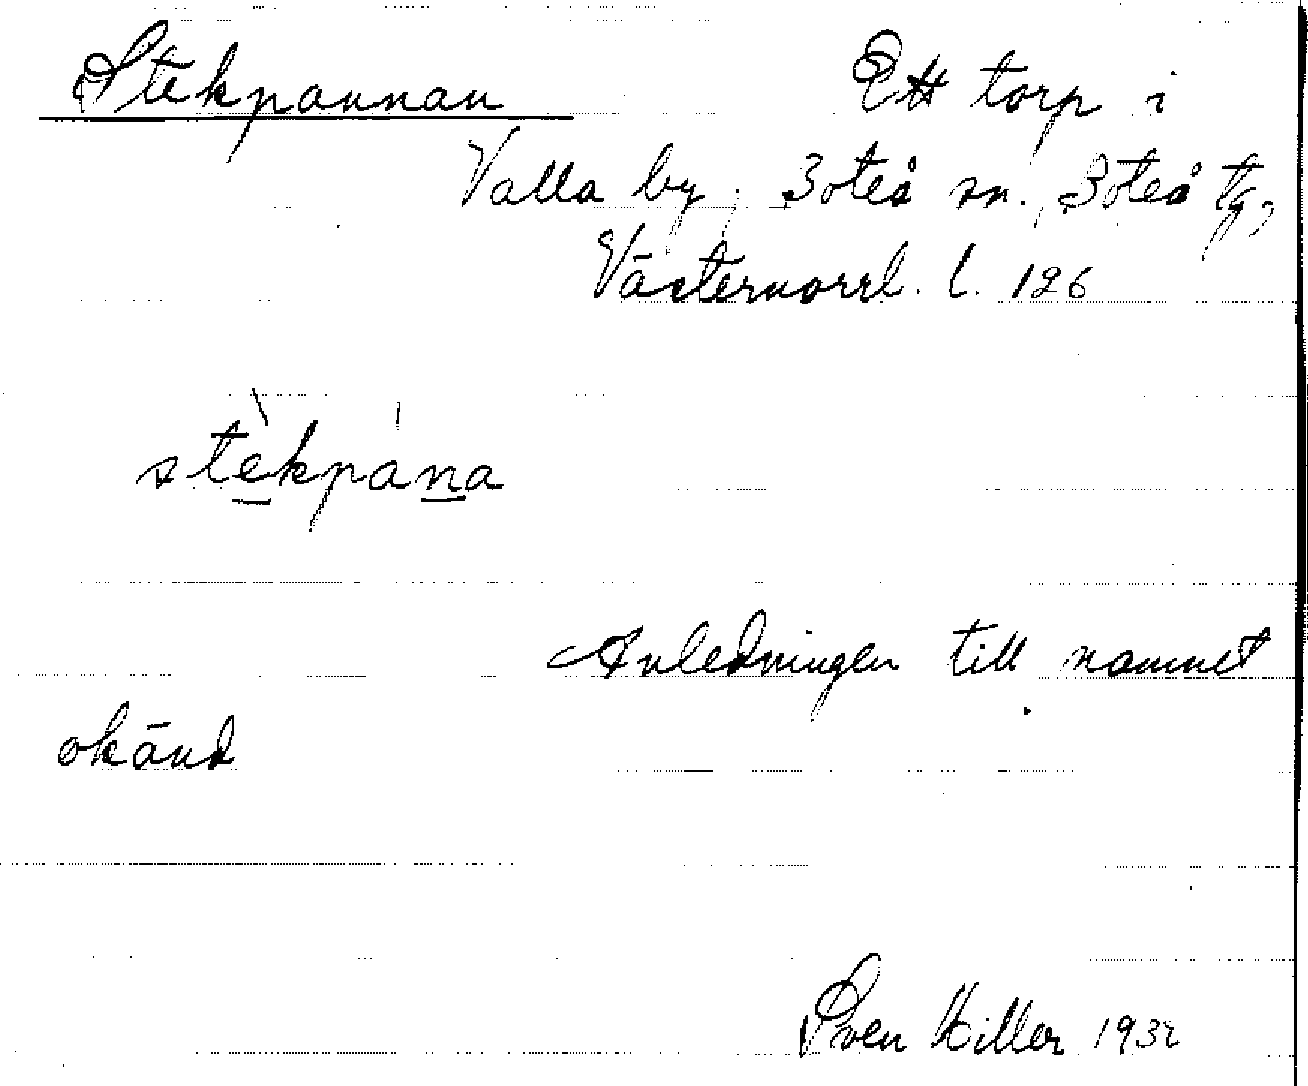 Stekpannan Ett torp i
Valla by, Boteå sn., Boteå tg,
Västernorrl. l. 126
stèkpána
Anledningen till namnet
okänd
Sven Hiller 1932